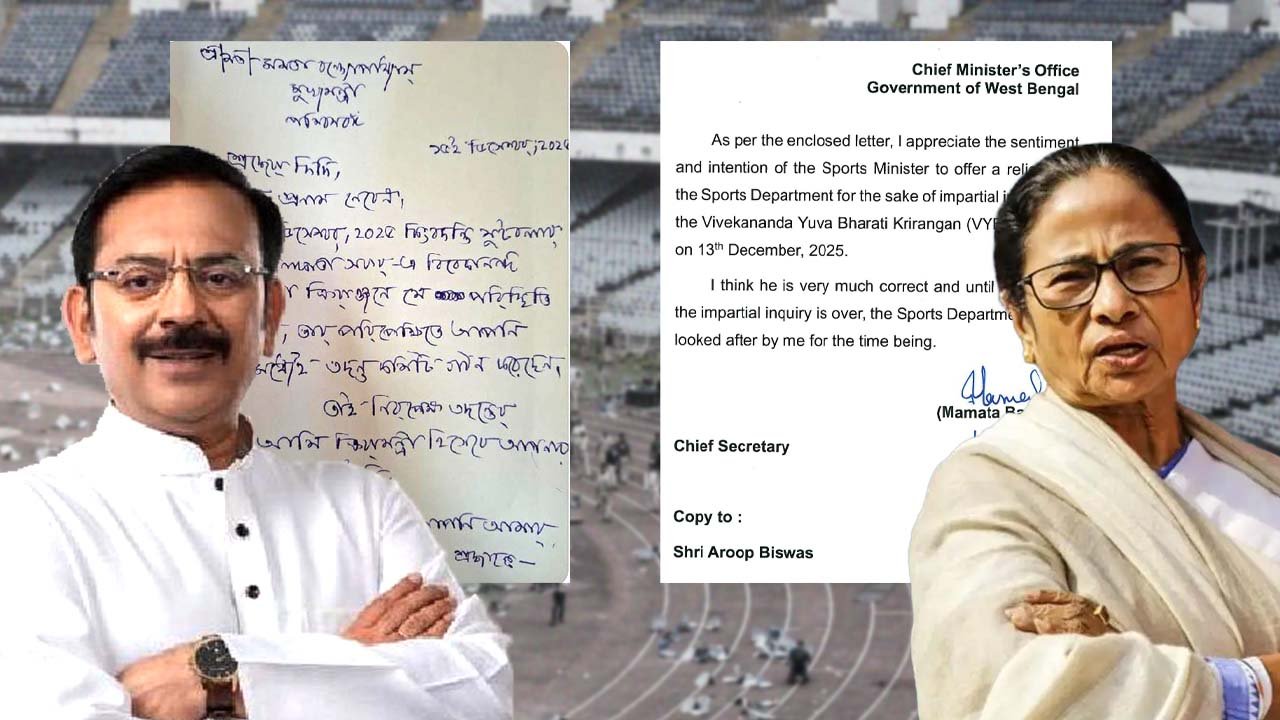 শ্রীমতী মমতা বন্দ্যোপাধ্যায়
মুখ্যমন্ত্রী
পশ্চিমবঙ্গ
১৫ই ডিসেম্বর, ২০২৫
শ্রদ্ধেয়া দিদি,
প্রণাম নেবেন।
ডিসেম্বর, ২০২৫ কিংবদন্তি ফুটবলার
বিবেকানন্দ
যে পরিস্থিতি
তার পরিপ্রেক্ষিতে আপনি
তদন্ত কমিটি গঠন করেছেন,
তাই নিরপেক্ষ তদন্তের
আমি ক্রীড়ামন্ত্রী হিসেবে আপনার
আপনি আমার
Chief Minister's Office
Government of West Bengal
As per the enclosed letter, I appreciate the sentiment
and intention of the Sports Minister to offer a
the Sports Department for the sake of impartial
the Vivekananda Yuva Bharati Krirangan
on 13th December, 2025.
I think he is very much correct and until
the impartial inquiry is over, the Sports
looked after by me for the time being.
(Mamata
Chief Secretary
Copy to :
Shri Aroop Biswas